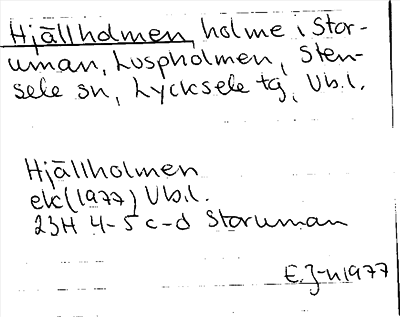 Hjällholmen, holme i Stor-
uman, Luspholmen, Sten-
sele sn, Lycksele tg, Vb.l.
Hjällholmen
ek (1977) Vb.l.
23H 4-5 c-d Storuman
E.J-n 1977